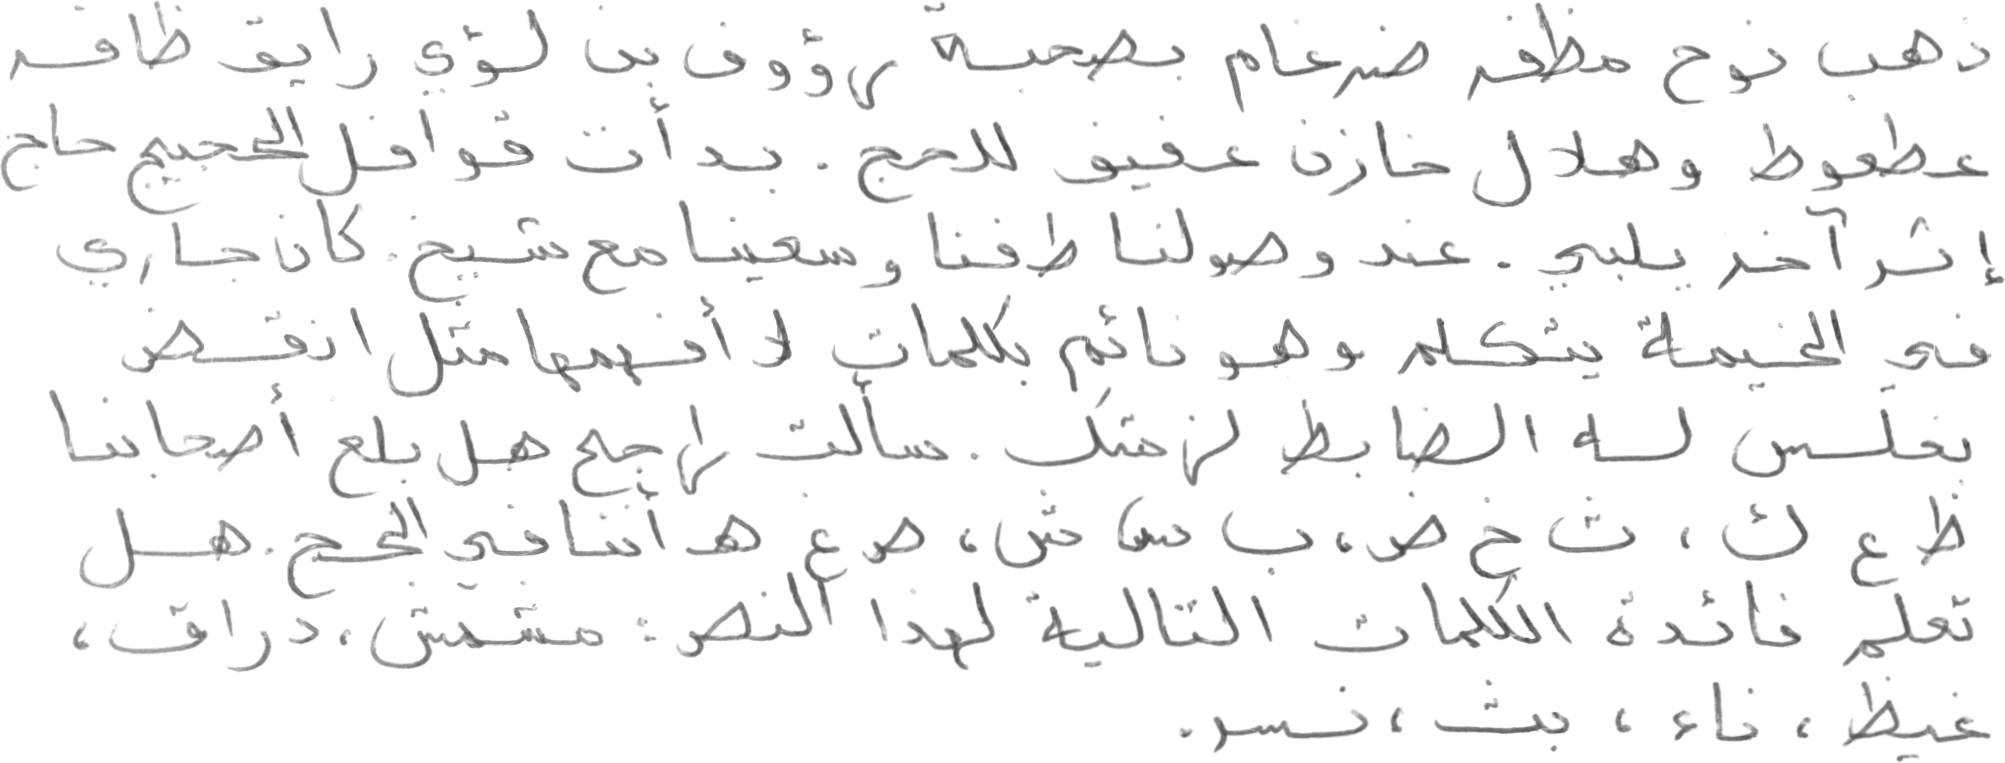 ذهب نوح مظفر ضرغام بصحبة رؤوف بن لؤي رايق ظافر
عطعوط وهلال خازن عفيف للحج . بدأت قوافل الحجيج حاج
إثر آخر يلبي . عند وصولنا طفنا وسعينا مع شيخ . كان جاري
في الخيمة يتكلم وهو نائم بكلمات لا أفهمها مثل انقض
بغلس له الضابط لزمتك . سألت راجح هل بلغ أصحابنا
ظ ع ك ، ث خ ض ، ب س ش ، ص غ هـ أننا في الحج . هل
تعلم فائدة الكلمات التالية لهذا النص : مشمش ، دراق ،
غيظ ، ناء ، بث ، نسر .